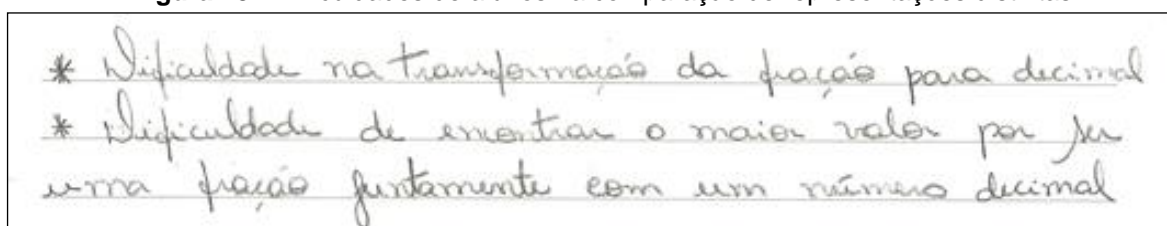 * Dificuldade na transformação da fração para decimal
* Dificuldade de encontrar o maior valor por ser
uma fração juntamente com um número decimal